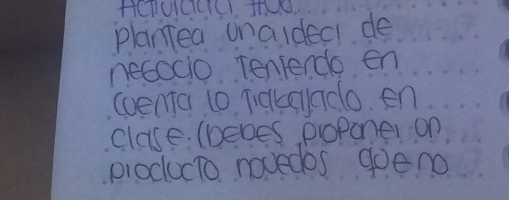 Plantea una idea de
negocio Teniendo en
cuenta lo Trabajado en
clase. (Debes proponer un
producto novedos que no